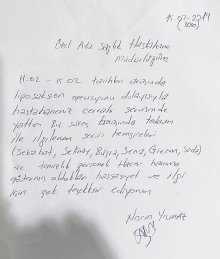 15.02.2019
Özel Ada Sağlık Hastahane
Müdürlüğüne
11.02 - 15.02 tarihleri arasında
liposakson operasyonu dolayısıyla
hastahaneniz cerrahi servisinde
yattım. Bu süreç sırasında
ile ilgilenen servis hemşireleri
(Sebahat, Büşra, Sena, Gizem, Seda)
ve temizlik personeli
göstermiş oldukları hassasiyet ve ilgi
için çok teşekkür ediyorum
Narin Yılmaz